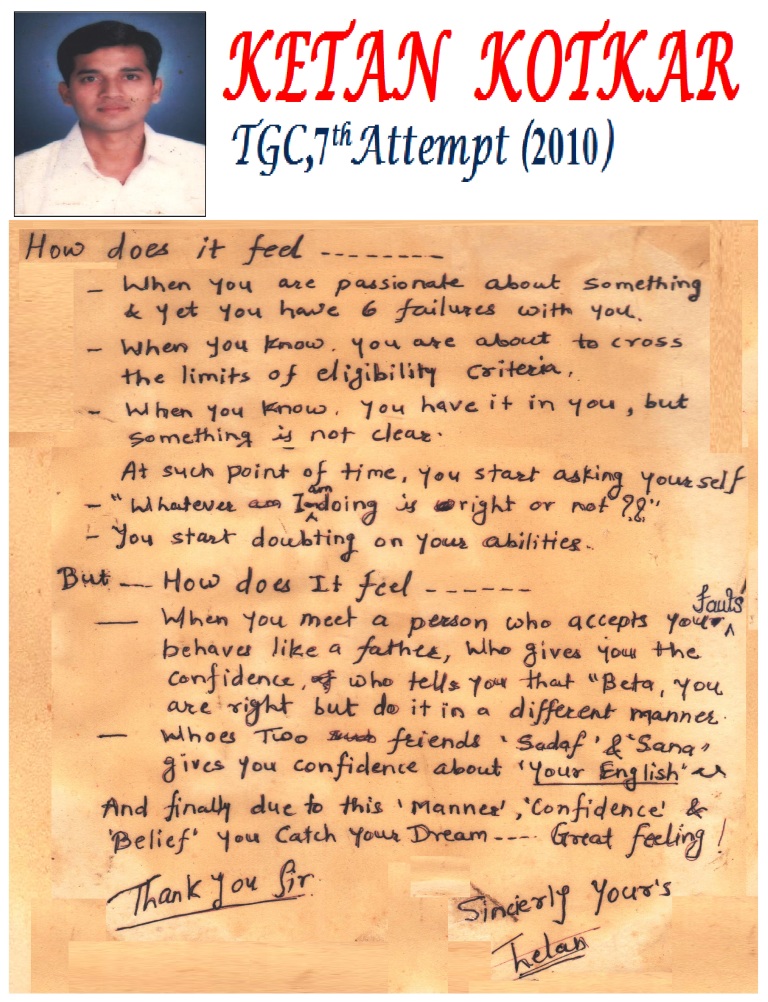 KETAN KOTKAR
TGC,7th Attempt (2010)
How does it feel --------
- When you are passionate about something
& yet you have 6 failures with you.
- When you know. you are about to cross
the limits of eligibility criteria.
- When you know. you have it in you, but
something is not clear.
At such point of time, you start asking yourself
- "Whatever I am doing is right or not ??"
- You start doubting on your abilities..
But -- How does It feel ------
— When you meet a person who accepts your fauts
behaves like a father, who gives you the
confidence, who tells you that "Beta, you
are right but do it in a different manner.
— Whoes Two friends 'Sadaf' & "Sana"
gives you confidence about 'Your English'
And finally due to this 'Manner', 'Confidence' &
'Belief' you Catch Your Dream ---- Great feeling!
Thank you Sir
Sincierly Your's
Ketan